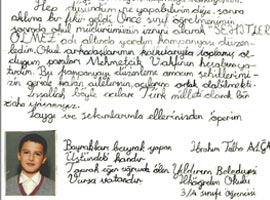 Hep düşündüm ne yapabilirim diye sonra
aklıma bir fikir geldi. Önce sınıf öğretmenimin
sonra okul müdürümüzün izniyle okulda "ŞEHİTLER
ÖLMEZ" adı altında yardım kampanyası düzen-
ledim. Okul arkadaşlarımın katkılarıyla toplamış ol-
duğum paraları Mehmetçik Vakfı'nın hesabına ya-
tırdım. Bu kampanyayı düzenleme amacım şehitlerimi-
zin geride kalan ailelerinin acılarına ortak olabilmekti.
İnşallah böyle acıları Türk milleti olarak bir
daha yaşamayız.
Saygı ve selamlarımla ellerinizden öperim
Bayrakları bayrak yapan
Üstündeki kandır
Toprak eğer uğrunda ölen
Varsa vatandır.
İbrahim Talha
Yıldırım Belediyesi
İlköğretim Okulu
3/A sınıfı öğrencisi